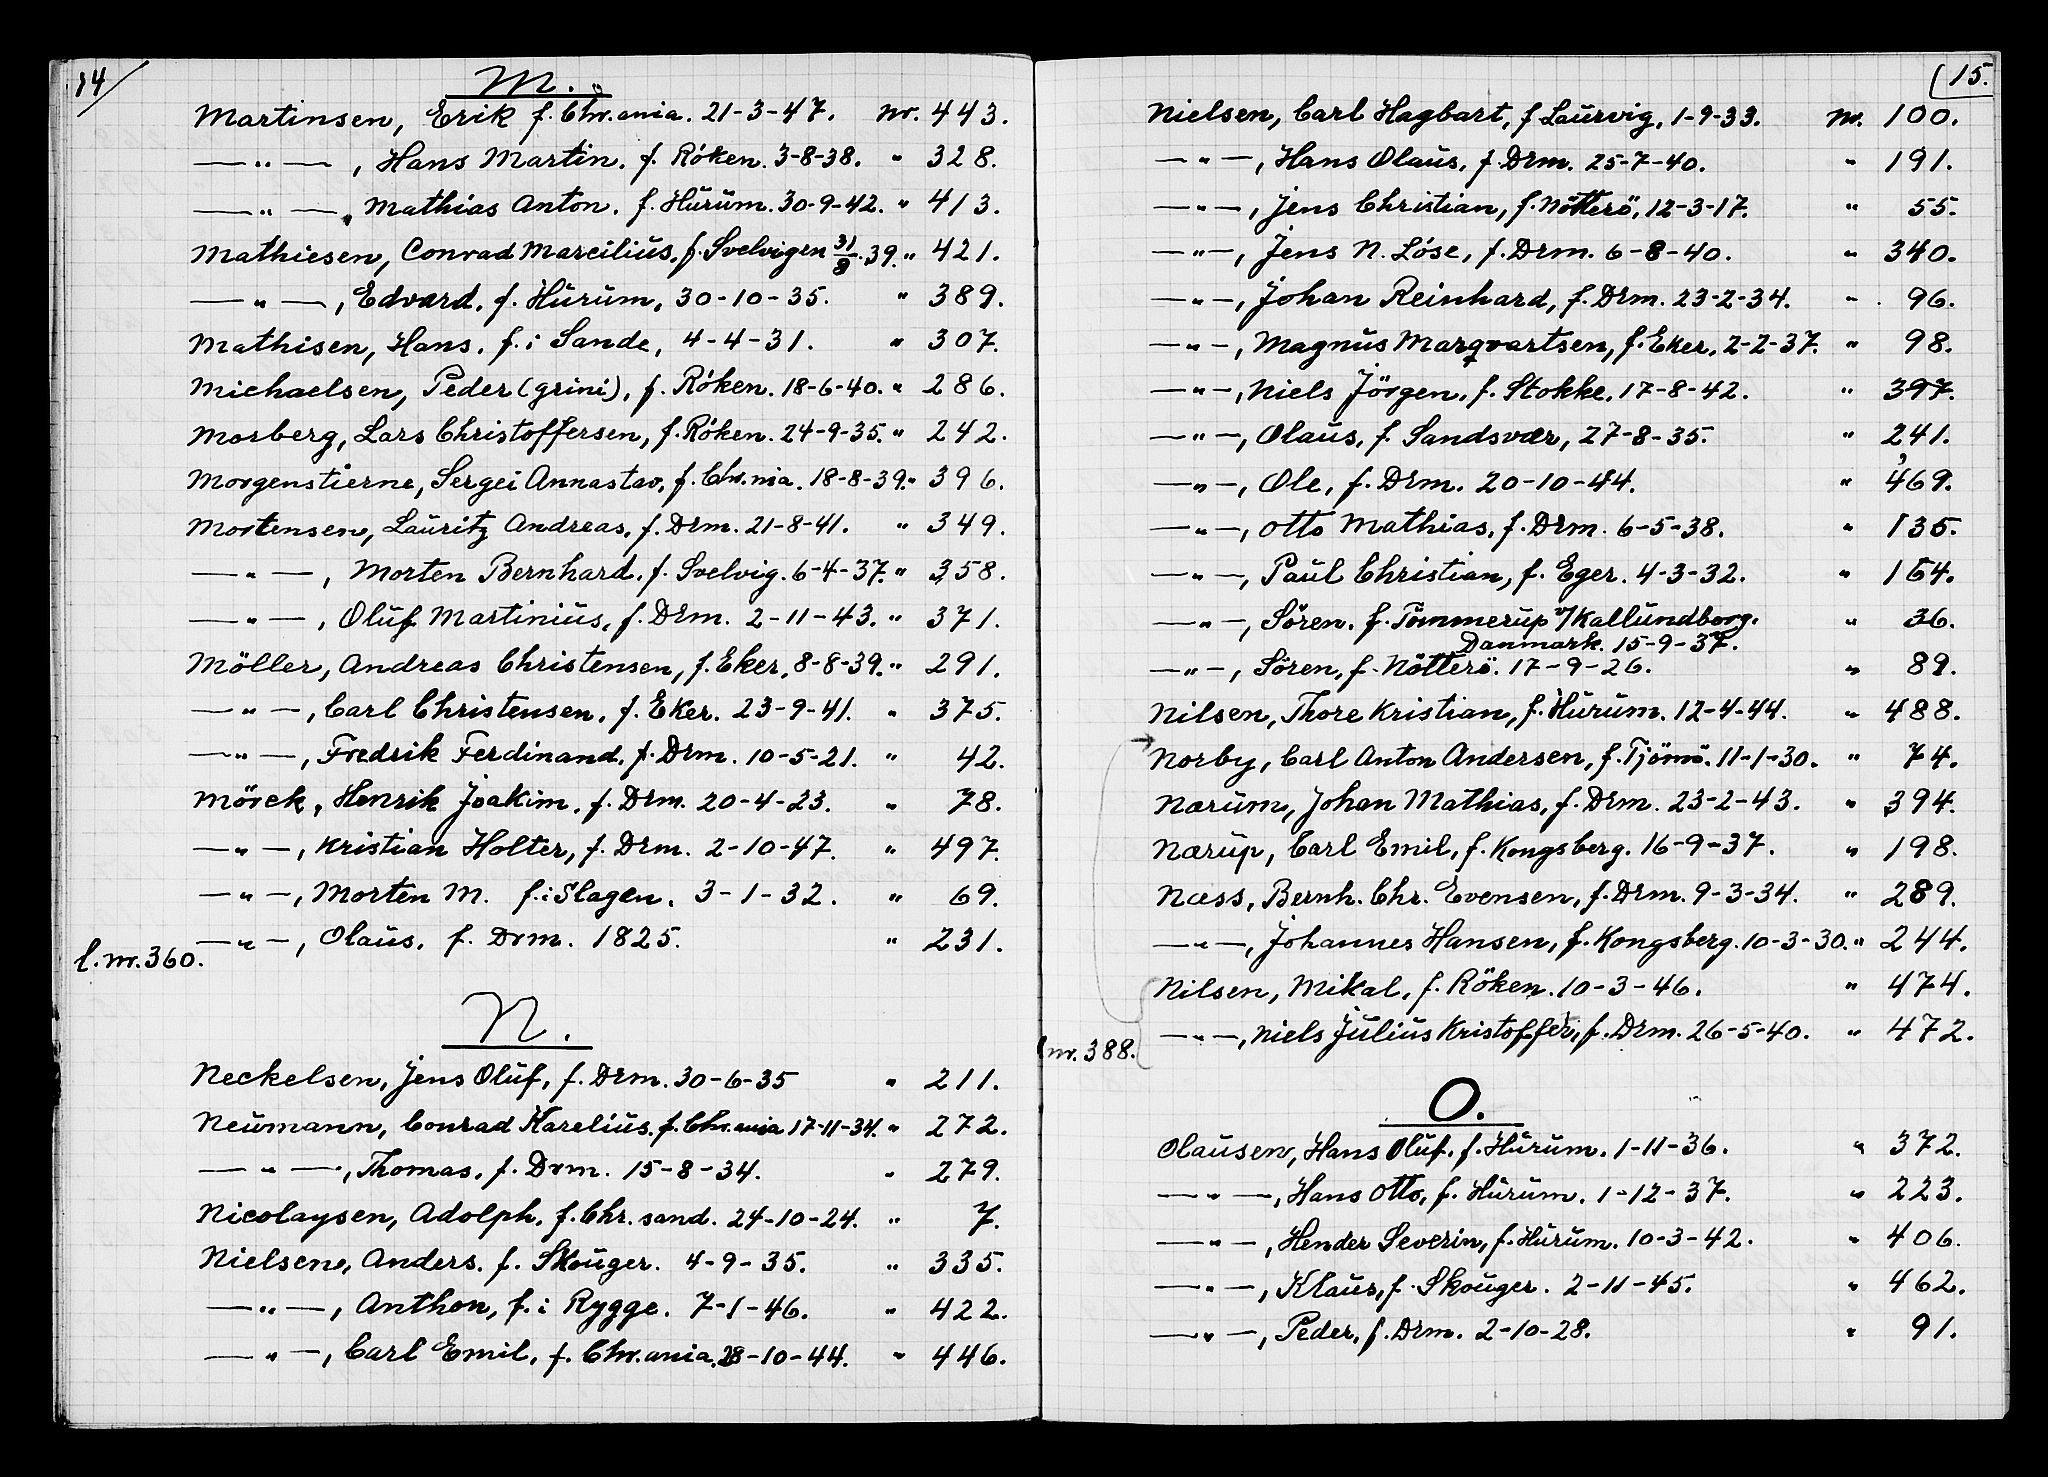 14/
M.
Martinsen, Erik f. Chr.ania. 21-3-47. Nr. 443.
—"—, Hans Martin. f. Röken. 3-8-38. " 328.
—"—, Mathias Anton. f. Hurum. 30-9-42. " 413.
Mathiesen, Conrad Marcilius, f. Svelvigen 31/8.39. " 421.
—"—, Edvard. f. Hurum, 30-10-35. " 389.
Mathisen, Hans. f. i Sande, 4-4-31. " 307.
Michaelsen, Peder (Grini), f. Röken. 18-6-40. " 286.
Morberg, Lars Christoffersen, f. Röken. 24-9-35. " 242.
Morgenstierne, Sergei Annastav, f. Chr.nia. 18-8-39. " 396.
Mortensen, Lauritz Andreas, f. Drm. 21-8-41. " 349.
—"—, Morten Bernhard. f. Svelvig. 6-4-37. " 358.
—"—, Oluf Martinius, f. Drm. 2-11-43. " 371.
Möller, Andreas Christensen, f. Eker. 8-8-39. " 291.
—"—, Carl Christensen, f. Eker. 23-9-41. " 375.
—"—, Fredrik Ferdinand, f. Drm. 10-5-21. " 42.
Mörck, Henrik Joakim. f. Drm. 20-4-23. " 78.
—"—, Kristian Holter, f. Drm. 2-10-47. " 497.
—"—, Morten M. f. i Slagen. 3-1-32. " 69.
—"—, Olaus. f. Drm. 1825. " 231.
l.nr.360.
N.
Neckelsen, Jens Oluf, f. Drm. 30-6-35 " 211.
Neumann, Conrad Karelius. f. Chr.ania 17-11-34. " 272.
—"—, Thomas. f. Drm. 15-8-34. " 279.
Nicolaysen, Adolph. f. Chr.sand. 24-10-24. " 7.
Nielsen, Anders. f. Skouger. 4-9-35. " 335.
—"—, Anthon, f. i Rygge. 7-1-46. " 422.
—"—, Carl Emil, f. Chr.ania. 28-10-44. " 446.
15.
Nielsen, Carl Hagbart, f Laurvig. 1-9-33. Nr. 100.
—"—, Hans Olaus, f. Drm. 25-7-40. " 191.
—"—, Jens Christian, f. Nötterö, 12-3-17. " 55.
—"—, Jens N. Löse, f. Drm. 6-8-40. " 340.
—"—, Johan Reinhard, f. Drm. 23-2-34. " 96.
—"—, Magnus Marqvartsen, f. Eker. 2-2-37. " 98.
—"—, Niels Jörgen, f. Stokke. 17-8-42. " 397.
—"—, Olaus, f. Sandsvær, 27-8-35. " 241.
—"—, Ole, f. Drm. 20-10-44. " 469.
—"—, Otto Mathias, f. Drm. 6-5-38. " 135.
—"—, Paul Christian, f. Eger. 4-3-32. " 164.
—"—, Sören. f. Tömmerup v/Kallundborg. " 36.
Danmark. 15-9-37.
—"—, Sören, f. Nötterö. 17-9-26. " 89.
Nilsen, Thore Kristian, f. Hurum. 12-4-44. " 488.
Norby, Carl Anton Andersen, f. Tjömö. 11-1-30. " 74.
Nærum, Johan Mathias, f. Drm. 23-2-43. " 394.
Nærup, Carl Emil, f. Kongsberg. 16-9-37. " 198.
Næss, Bernh. Chr. Evensen, f. Drm. 9-3-34. " 289.
—"—, Johannes Hansen, f. Kongsberg. 10-3-30. " 244.
Nilsen, Mikal, f. Röken. 10-3-46. " 474.
—"—, Niels Julius Kristoffer, f. Drm. 26-5-40. " 472.
l nr. 388.
O.
Olausen, Hans Oluf. f. Hurum. 1-11-36. " 372.
—"—, Hans Otto, f. Hurum. 1-12-37. " 223.
—"—, Hender Severin, f. Hurum. 10-3-42. " 406.
—"—, Klaus, f. Skouger. 2-11-45. " 462.
—"—, Peder, f. Drm. 2-10-28. " 91.